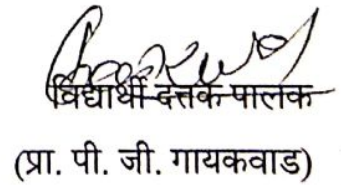 विद्यार्थी दत्तक पालक
(प्रा. पी. जी. गायकवाड)